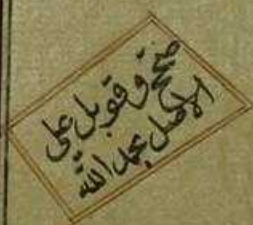 صحح وقوبل على
الاصل بحمد الله